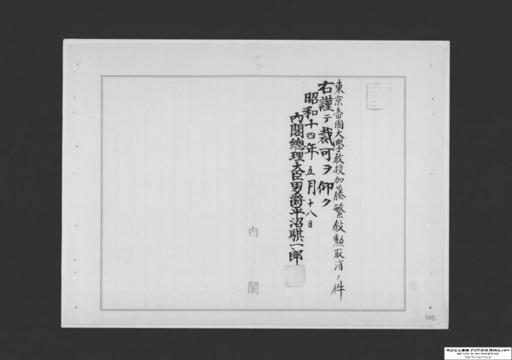 東京帝國大學教授加藤繁敍勳取消ノ件
右謹テ裁可ヲ仰ク
昭和十四年五月十八日
內閣總理大臣男爵平沼騏一郎
內閣